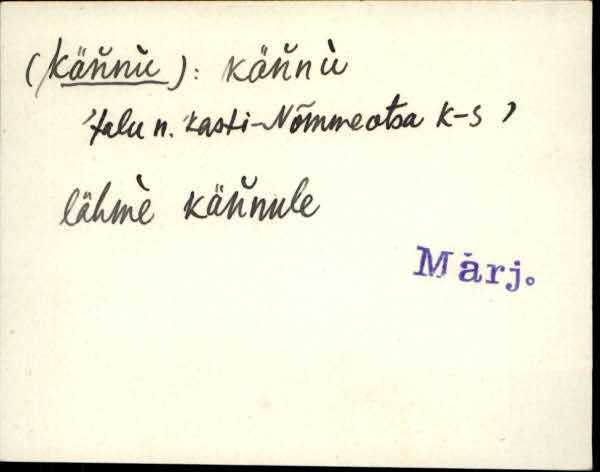 (käňnù): käňnù
'talu n. Kasti-Nõmmeotsa k-s'
lähmè käňnule
Märj.